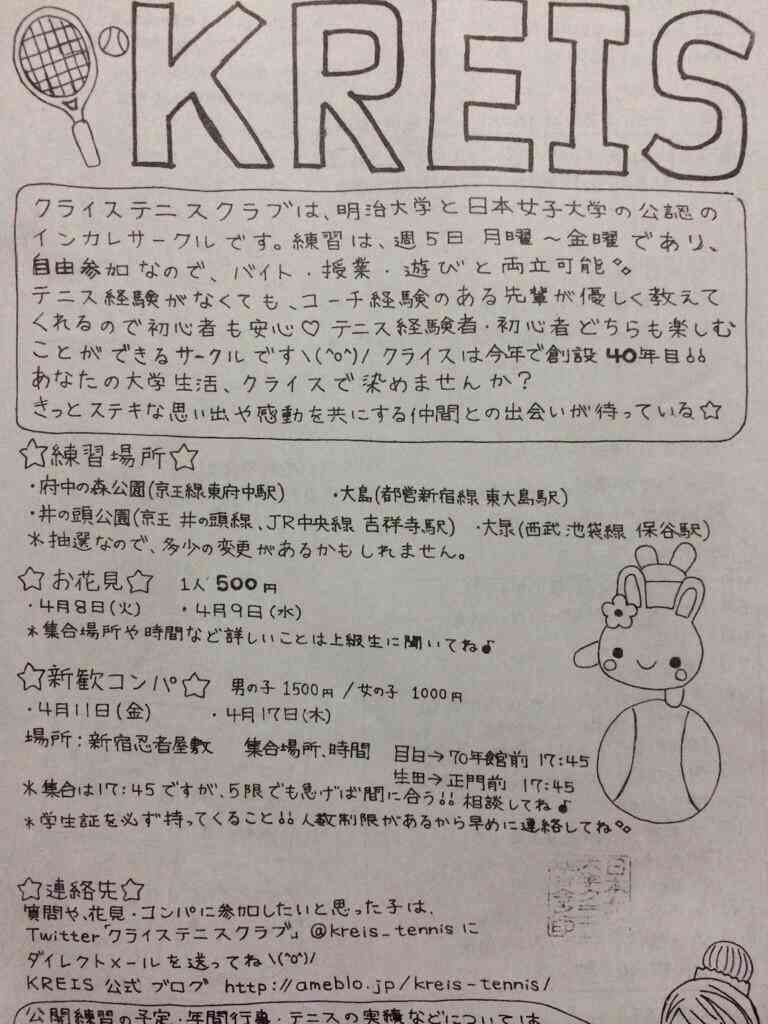 KREIS
クライステニスクラブは、明治大学と日本女子大学の公認の
インカレサークルです。練習は、週5日 月曜～金曜であり、
自由参加なので、バイト・授業・遊びと両立可能°。
テニス経験がなくても、コーチ経験のある先輩が優しく教えて
くれるので初心者も安心♡ テニス経験者・初心者どちらも楽しむ
ことができるサークルです\(^o^)/ クライスは今年で創設 40年目!!
あなたの大学生活、クライスで染めませんか？
きっとステキな思い出や感動を共にする仲間との出会いが待っている☆
☆練習場所☆
・府中の森公園(京王線東府中駅) ・大島(都営新宿線 東大島駅)
・井の頭公園(京王 井の頭線、JR中央線 吉祥寺駅) ・大泉(西武 池袋線 保谷駅)
＊抽選なので、多少の変更があるかもしれません。
☆お花見☆ 1人 500円
・4月8日(火) ・4月9日(水)
＊集合場所や時間など詳しいことは上級生に聞いてね♪
☆新歓コンパ☆ 男の子 1500円 / 女の子 1000円
・4月11日(金) ・4月17日(木)
場所：新宿忍者屋敷 集合場所、時間 目白→70年館前 17:45
生田→正門前 17:45
＊集合は17:45ですが、5限でも急げば間に合う!! 相談してね♪
＊学生証を必ず持ってくること!! 人数制限があるから早めに連絡してね°。
☆連絡先☆
質問や、花見・コンパに参加したいと思った子は、
Twitter「クライステニスクラブ」 @kreis_tennis に
ダイレクトメールを送ってね\(^o^)/
KREIS 公式 ブログ http://ameblo.jp/kreis-tennis/
公開練習の予定・年間行事・テニスの実績などについては